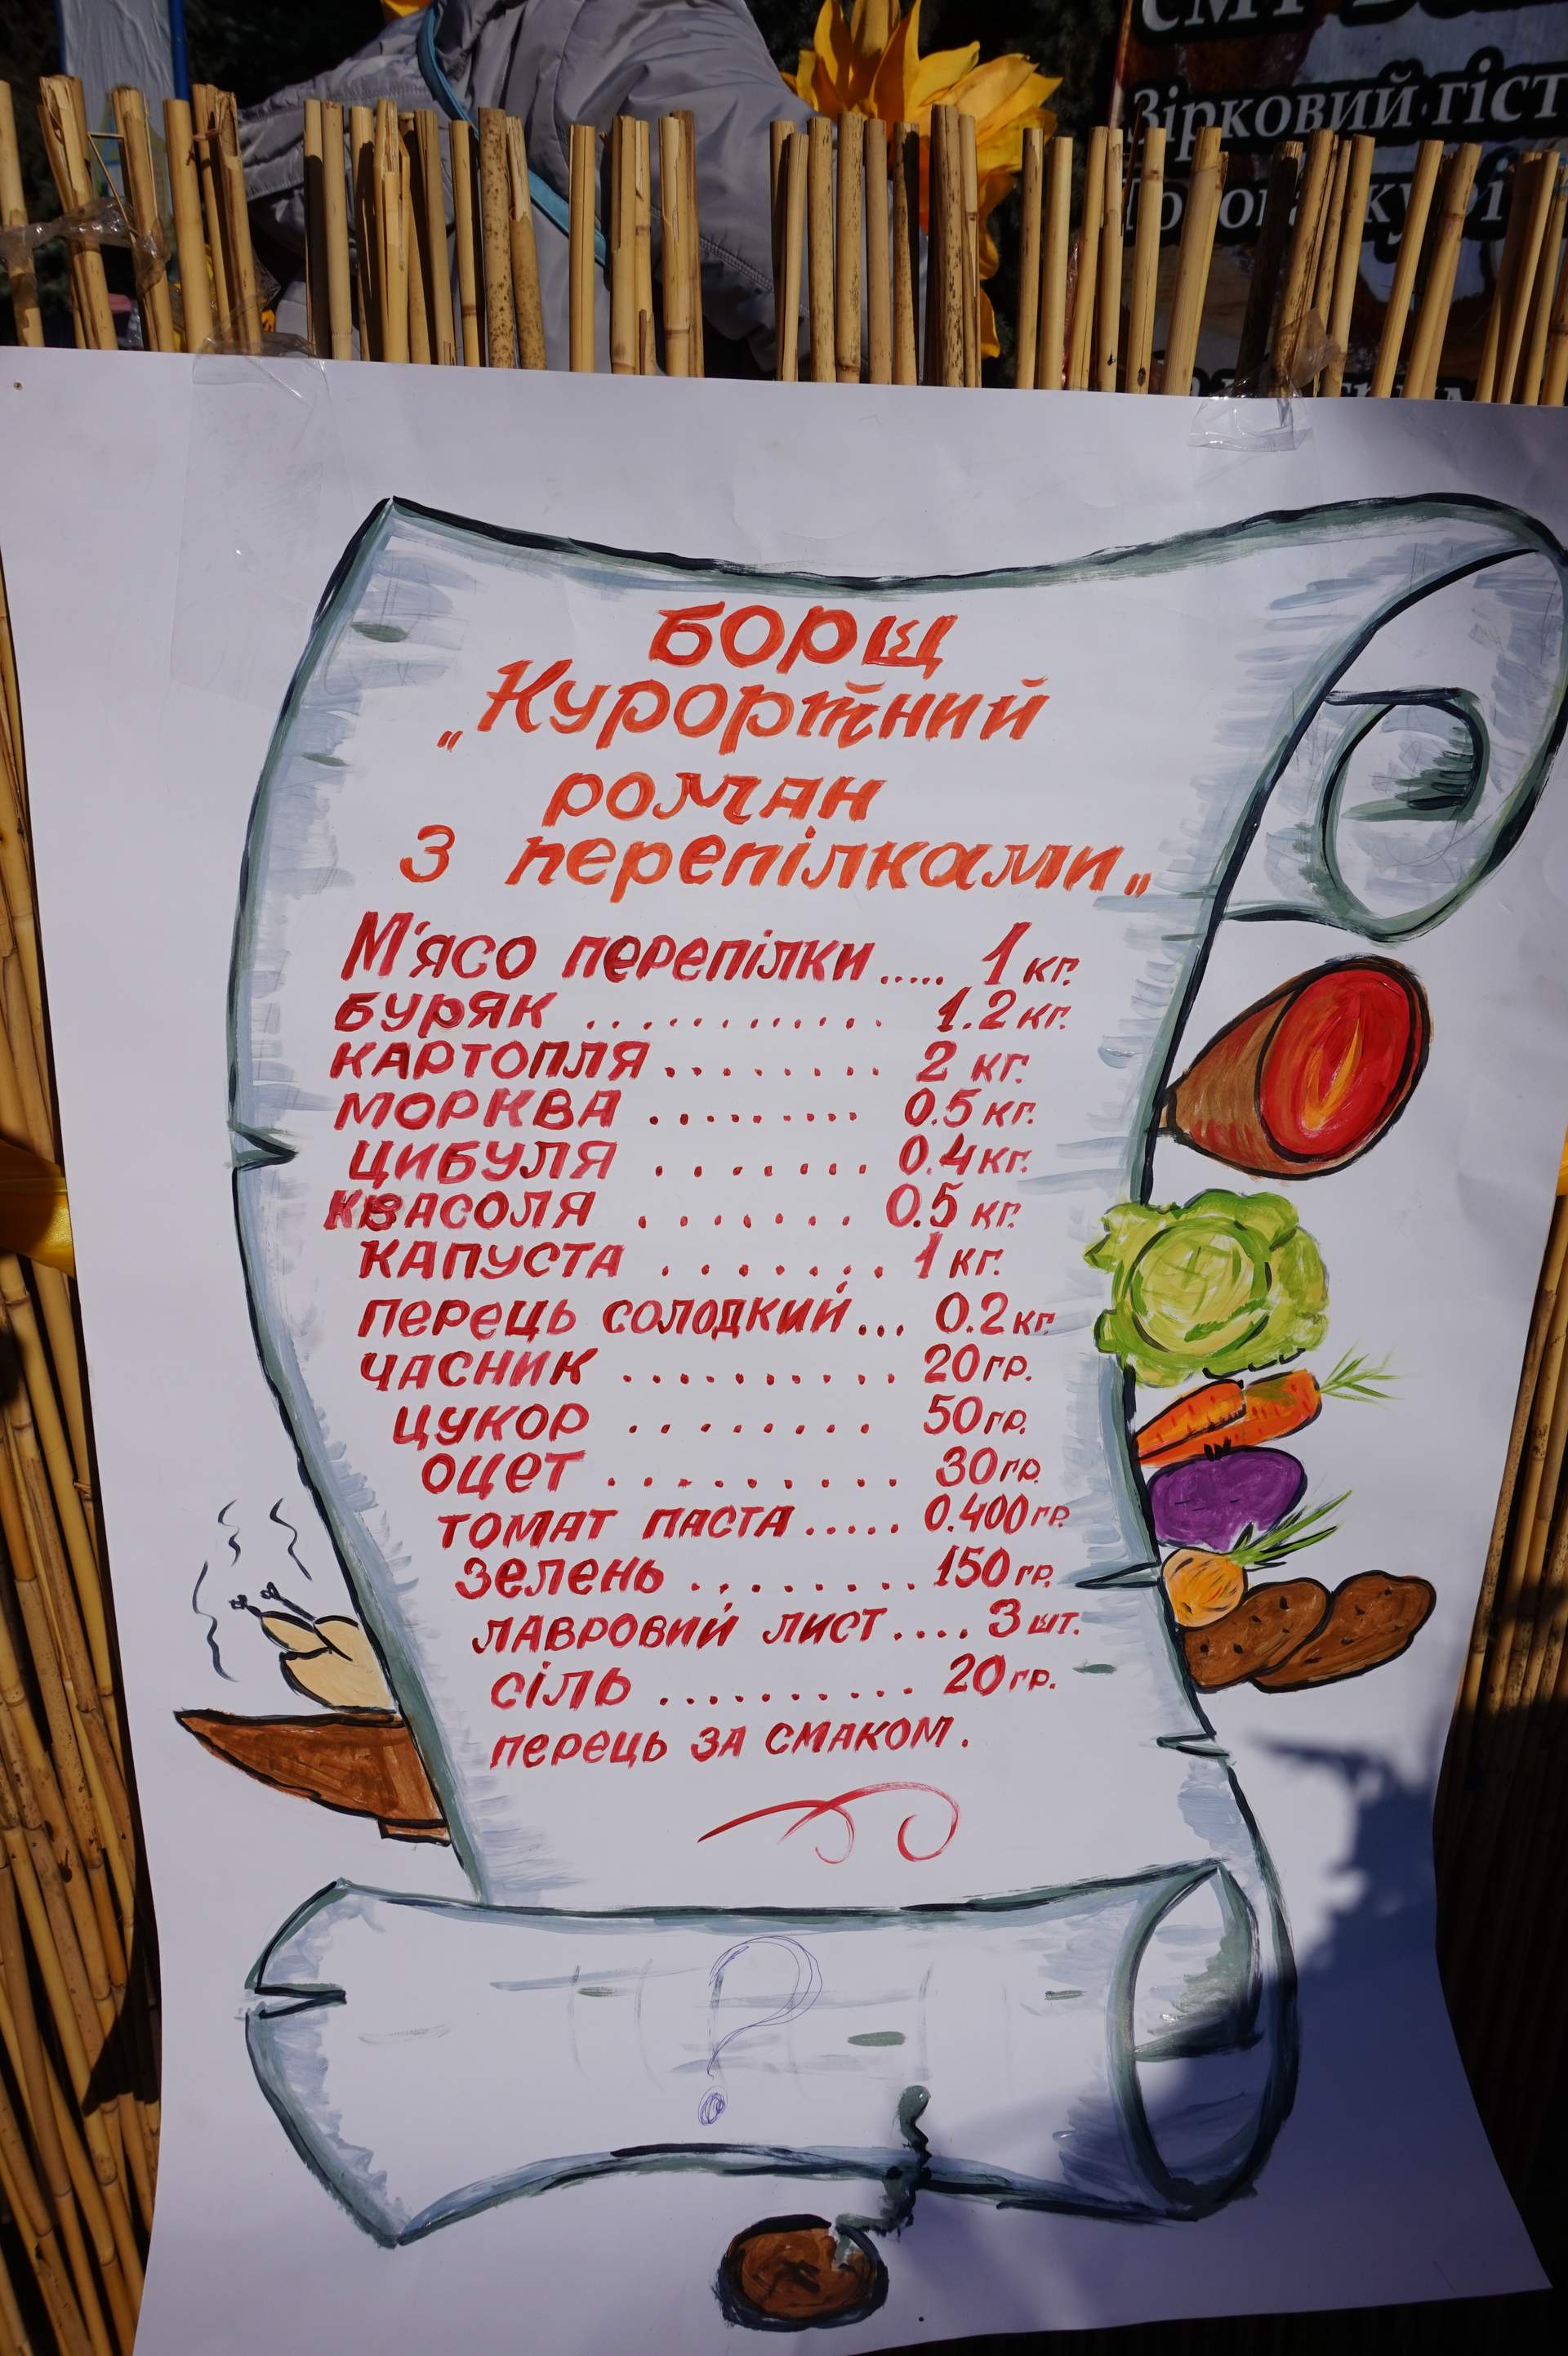 СМТ
Зірковий гіст
БОРЩ
„Курортний
роман
з перепілками„
М'ясо перепілки ..... 1 кг.
БУРЯК ............ 1.2 кг.
КАРТОПЛЯ ......... 2 кг.
МОРКВА ......... 0.5 кг.
ЦИБУЛЯ ....... 0.4 кг.
КВАСОЛЯ ....... 0.5 кг.
КАПУСТА ....... 1 кг.
перець солодкий ... 0.2 кг
ЧАСНИК .......... 20 гр.
ЦУКОР ........ 50 гр.
оцет ......... 30 гр.
ТОМАТ ПАСТА ..... 0.400 гр.
зелень ......... 150 гр.
ЛАВРОВИЙ ЛИСТ .... 3 шт.
сіль .......... 20 гр.
перець ЗА СМАКОМ.
?